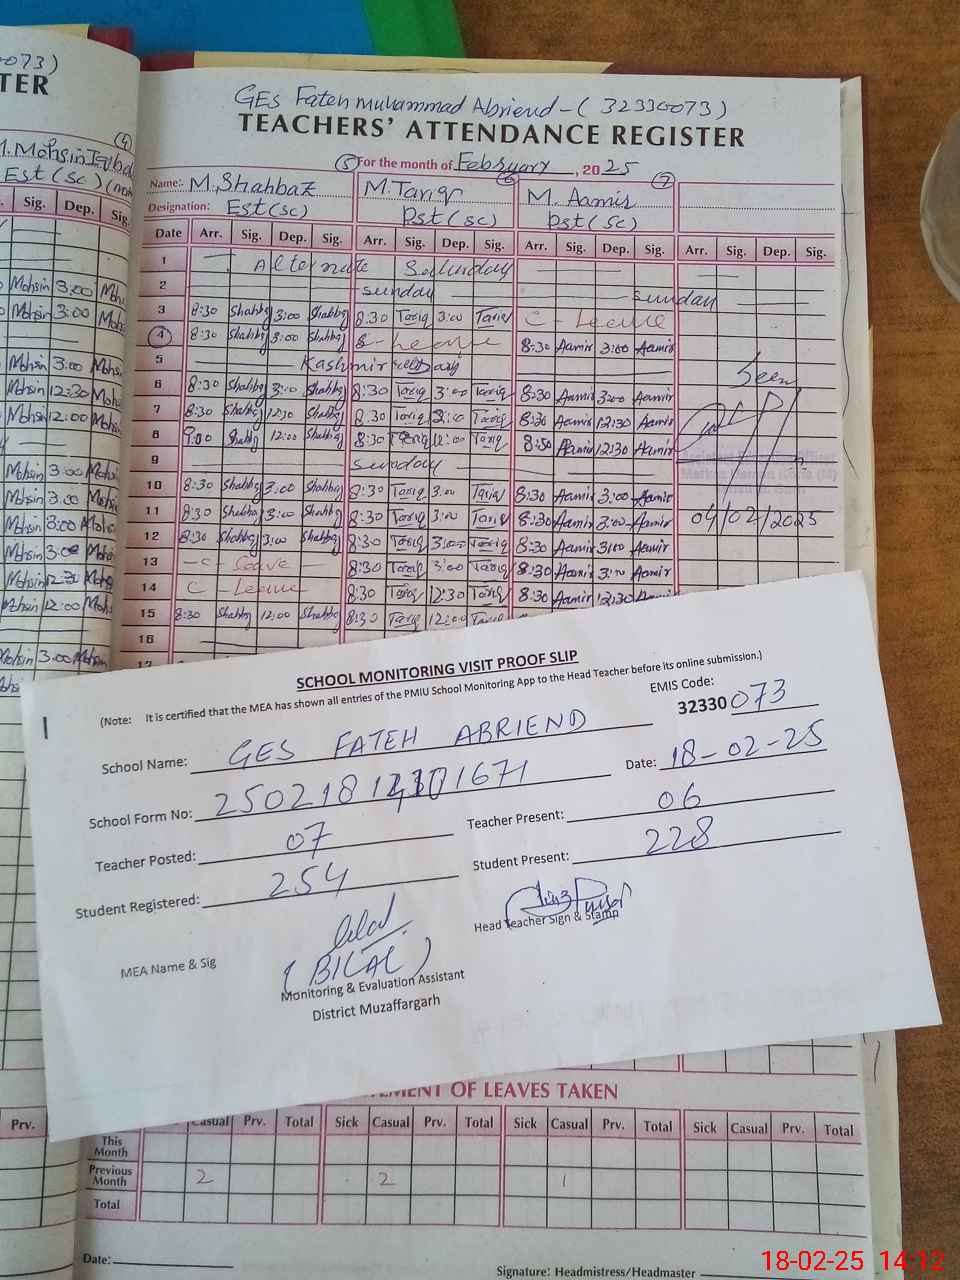 073)
TER
4
M. Mohsin Iqbal
Est (SC)
Sig. Dep. Sig.
Mohsin 3:00 Moh
Mohsin 3:00 Moh
Mohsin 3:00
Mohsin 12:30
Mohsin 12:00
Mohsin 3:00 Mohsin
Mohsin 3:00
Mohsin 3:00
Mohsin 3:00
Mohsin 12:30
Mohsin 12:00
Mohsin 3:00 Mohsin
Prv.
GES Fateh Muhammad Abriend - (32330073)
TEACHERS' ATTENDANCE REGISTER
5 For the month of February, 2025
6 7
Name:- M. Shahbaz M. Tariq M. Aamir
Designation: Est (SC) Pst (SC) Pst (SC)
Date Arr. Sig. Dep. Sig. Arr. Sig. Dep. Sig. Arr. Sig. Dep. Sig. Arr. Sig. Dep. Sig.
1 Alternate Saturday
2 Sunday Sunday
3 8:30 Shahbz 3:00 Shahbz 8:30 Tariq 3:00 Tariq C- Leave
4 8:30 Shahbz 3:00 Shahbz Leave 8:30 Aamir 3:00 Aamir
5 Kashmir Day
6 8:30 Shahbz 3:00 Shahbz 8:30 Tariq 3:00 Tariq 8:30 Aamir 3:00 Aamir
7 8:30 Shahbz 12:30 Shahbz 8:30 Tariq Tariq 8:30 Aamir 12:30 Aamir
8 9:00 Shahbz 12:00 Shahbz 8:30 Tariq 12:00 Tariq 8:30 Aamir 12:30 Aamir
9 Sunday
10 8:30 Shahbz 3:00 Shahbz 8:30 Tariq 3:00 Tariq 8:30 Aamir 3:00 Aamir
11 8:30 Shahbz 3:00 Shahbz 8:30 Tariq 3:00 Tariq 8:30 Aamir 3:00 Aamir
12 8:30 Shahbz 3:00 Shahbz 8:30 Tariq 3:00 Tariq 8:30 Aamir 3:00 Aamir
13 - C - Leave - 8:30 Tariq 3:00 Tariq 8:30 Aamir 3:00 Aamir
14 C - Leave 8:30 Tariq 12:30 Tariq 8:30 Aamir 12:30 Aamir
15 8:30 Shahbz 12:00 Shahbz 8:30 Tariq 12:00 Tariq
16
17
Seen
04/02/2025
SCHOOL MONITORING VISIT PROOF SLIP
(Note: It is certified that the MEA has shown all entries of the PMIU School Monitoring App to the Head Teacher before its online submission.)
EMIS Code:
32330 073
School Name: GES FATEH ABRIEND
Date: 18-02-25
School Form No:
Teacher Posted: 07
Teacher Present: 06
Student Registered: 254
Student Present: 228
Head Teacher Sign & Stamp
MEA Name & Sig
(BILAL)
Monitoring & Evaluation Assistant
District Muzaffargarh
OF LEAVES TAKEN
Casual Prv. Total Sick Casual Prv. Total Sick Casual Prv. Total Sick Casual Prv. Total
This Month
Previous Month 2 2 1
Total
Date:
Signature: Headmistress/Headmaster
18-02-25 14:12